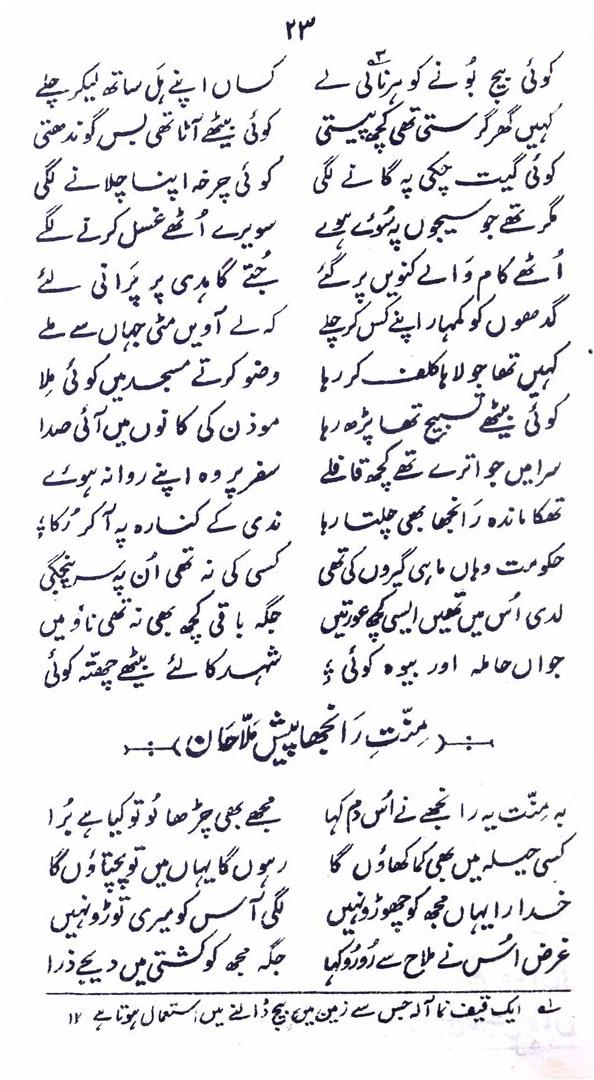 ۲۳
کوئی بیج بونے کو ہرنائی لے کساں اپنے ہل ساتھ لیکر چلے
کہیں گھر گرستی تھی کچھ پیستی کوئی بیٹھے آٹا تھی بس گوندھتی
کوئی گیت چکی پہ گانے لگی کوئی چرخہ اپنا چلانے لگی
مگر تھے جو سیجوں پہ سُوئے ہوے سویرے اُٹھے غسل کرتے لگے
اُٹھے کام والے کنویں پر گئے جُتے گاہدی پر پَرانی لئے
گدھوں کو کمہار اپنے کس کر چلے کہ لے آویں مٹی جہاں سے ملے
کہیں تھا جولاہا کلف کر رہا وضو کرتے مسجد میں کوئی مِلا
کوئی بیٹھے تسبیح تھا پڑھ رہا موذن کی کانوں میں آئی صدا
سرا میں جو اترے تھے کچھ قافلے سفر پر وہ اپنے روانہ ہوے
تھکا ماندہ رَانجھا بھی چلتا رہا ندی کے کنارہ پہ آ کر رُکا
حکومت وہاں ماہی گیروں کی تھی کسی کی نہ تھی اُن پہ سرپنچگی
لدی اُس میں تھیں ایسی کچھ عورتیں جگہ باقی کچھ بھی نہ تھی ناؤ میں
جواں حاملہ اور بیوہ کوئی شہد کا لئے بیٹھے چھتّہ کوئی
مِنّتِ رَانجھا پیش مَلّاحان
بہ مِنّت یہ رانجھے نے اُس دم کہا مجھے بھی چڑھا لو تو کیا ہے بُرا
کسی حیلہ میں بھی کما کھاؤں گا رہوں گا یہاں میں تو پچتاؤں گا
خدارا یہاں مجھ کو چھوڑو نہیں لگی آس کو میری توڑو نہیں
غرض اُس نے ملاح سے رُو رُو کہا جگہ مجھ کو کشتی میں دیجے ذرا
لہ ایک قیف نما آلہ جس سے زمین میں بیج ڈالنے میں استعمال ہوتا ہے ۱۲